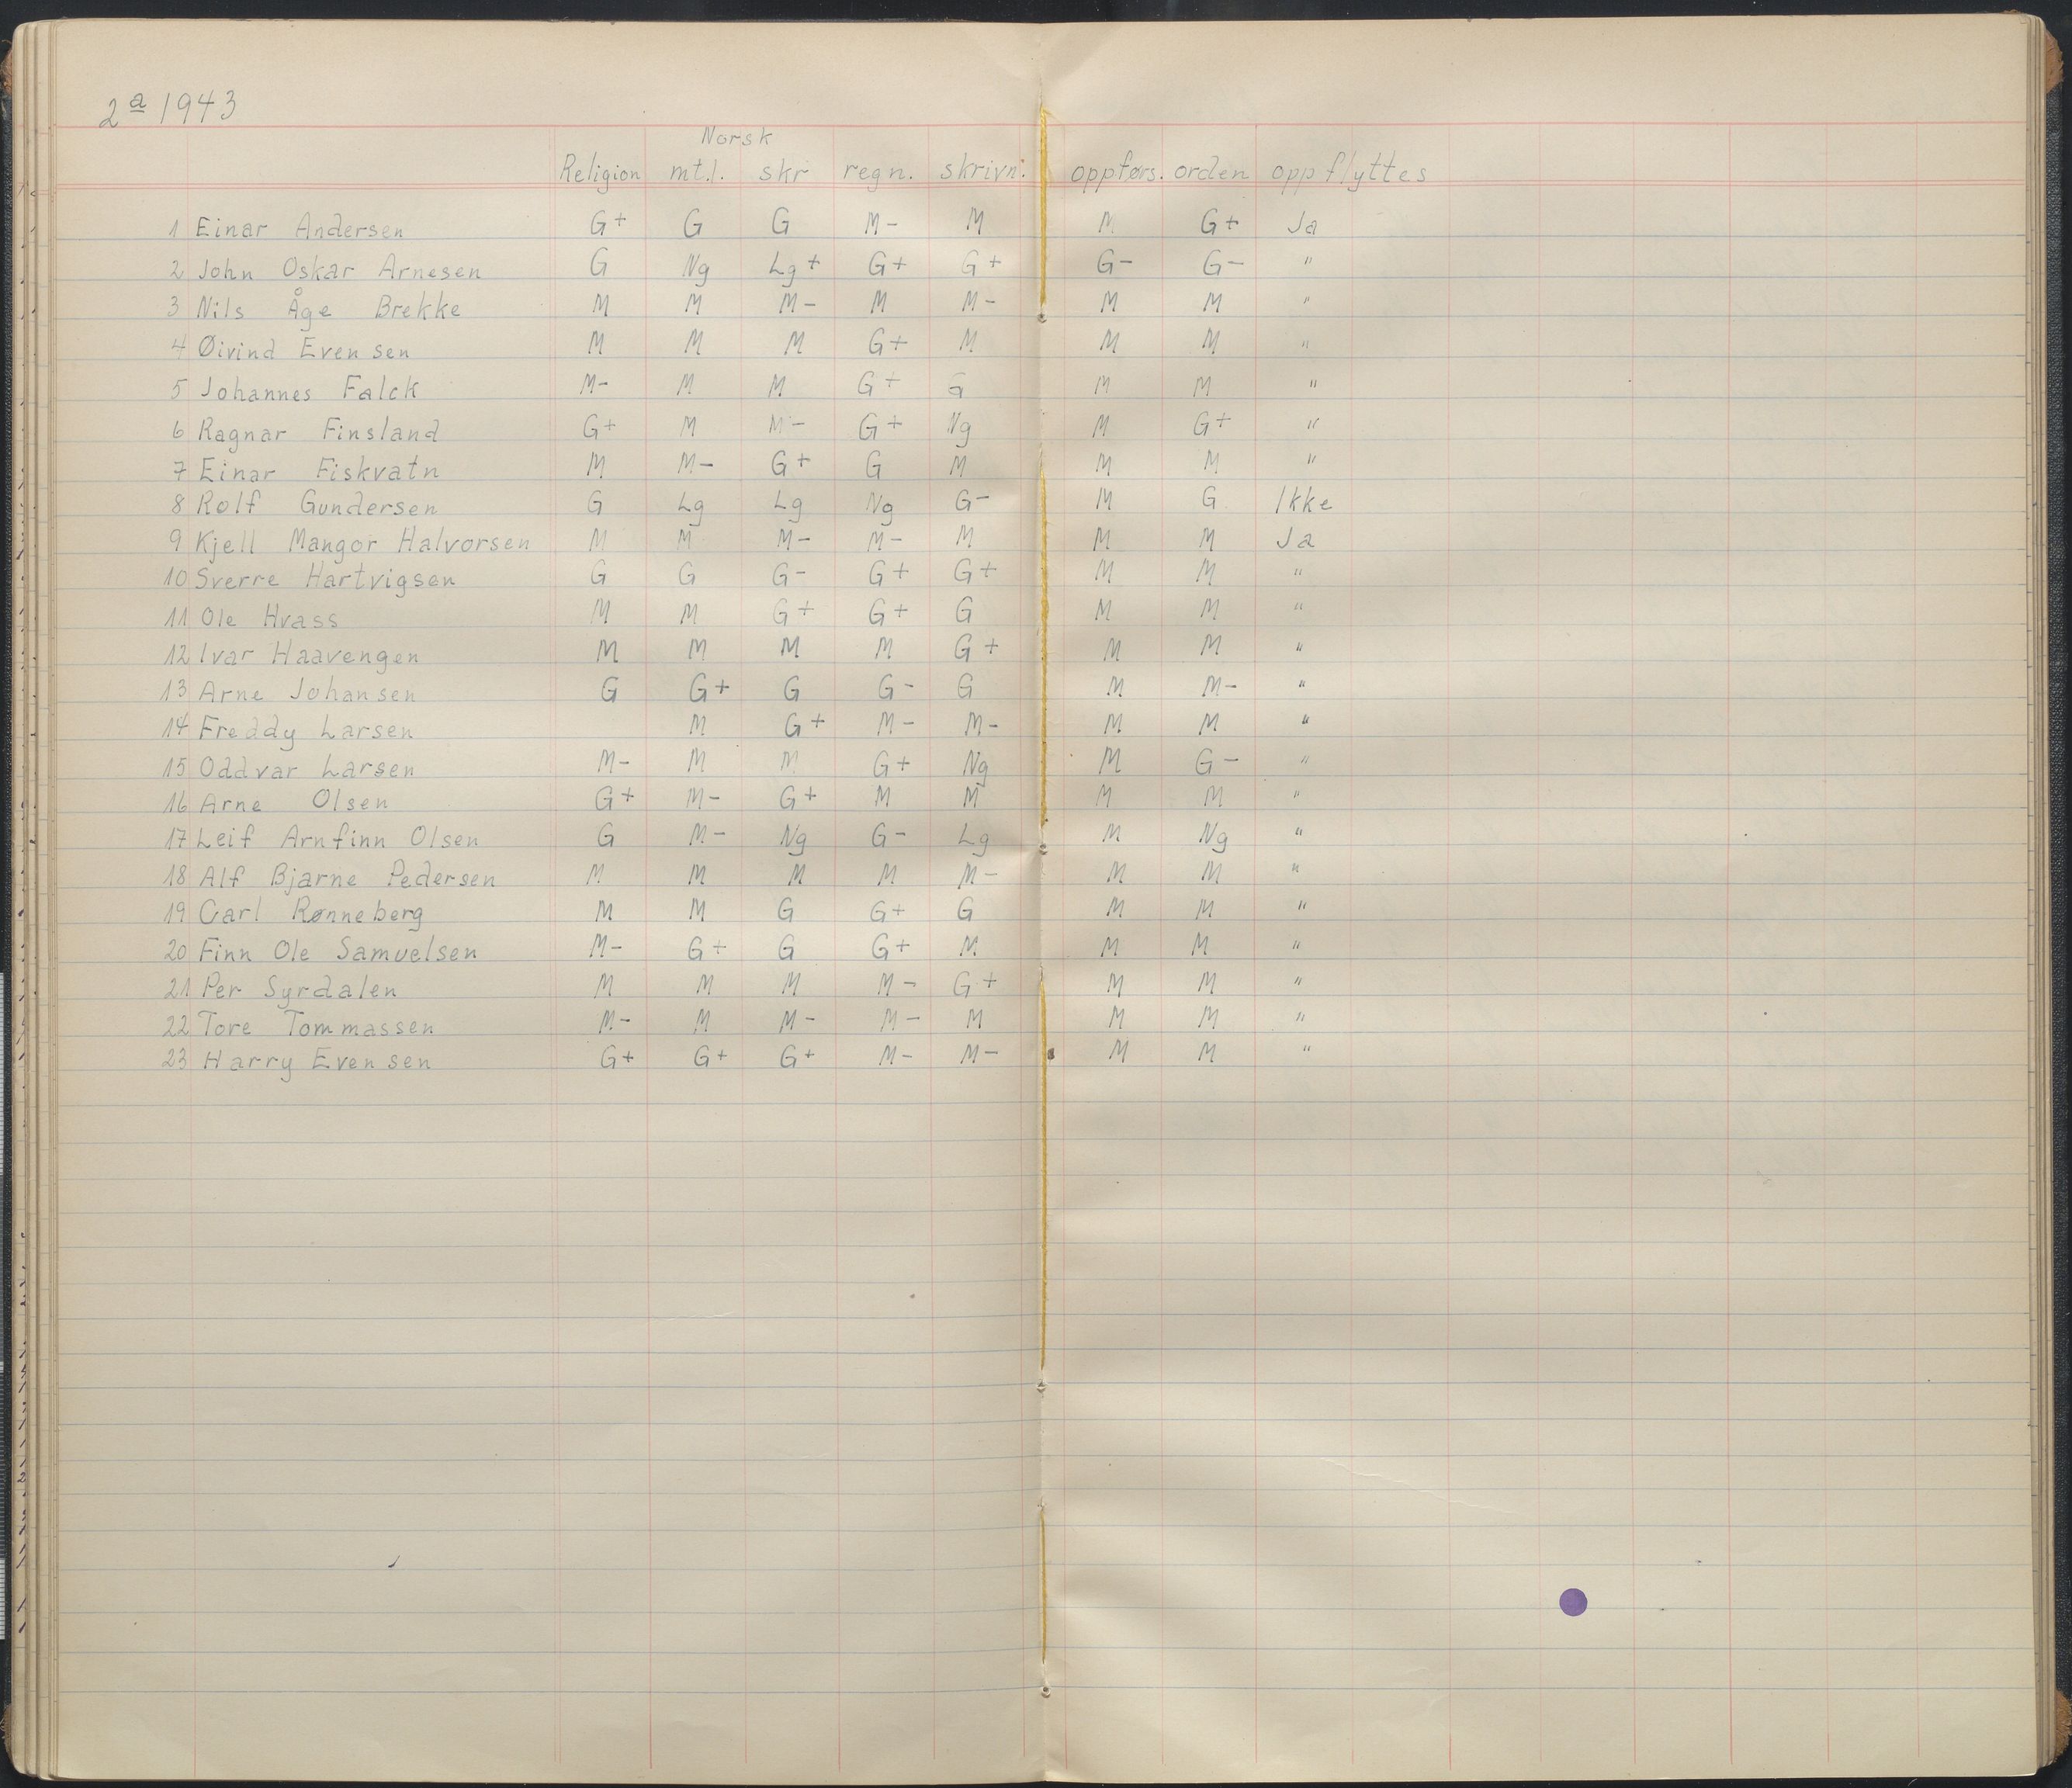 2a 1943
Norsk
Religion mtl. skr regn. skrivn. oppførs. orden oppflyttes
1 Einar Andersen G+ G G M- M M G+ Ja
2 John Oskar Arnesen G Ng Lg+ G+ G+ G- G- "
3 Nils Åge Brekke M M M- M M- M M "
4 Øivind Evensen M M M G+ M M M "
5 Johannes Falck M- M M G+ G M M "
6 Ragnar Finsland G+ M M- G+ Ng M G+ "
7 Einar Fiskvatn M M- G+ G M M M "
8 Rolf Gundersen G Lg Lg Ng G- M G Ikke
9 Kjell Mangor Halvorsen M M M- M- M M M Ja
10 Sverre Hartvigsen G G G- G+ G+ M M "
11 Ole Hvass M M G+ G+ G M M "
12 Ivar Haavengen M M M M G+ M M "
13 Arne Johansen G G+ G G- G M M- "
14 Freddy Larsen M G+ M- M- M M "
15 Oddvar Larsen M- M M G+ Ng M G- "
16 Arne Olsen G+ M- G+ M M M M "
17 Leif Arnfinn Olsen G M- Ng G- Lg M Ng "
18 Alf Bjarne Pedersen M M M M M- M M "
19 Carl Rønneberg M M G G+ G M M "
20 Finn Ole Samuelsen M- G+ G G+ M M M "
21 Per Syrdalen M M M M- G+ M M "
22 Tore Tommassen M- M M- M- M M M "
23 Harry Evensen G+ G+ G+ M- M- M M "